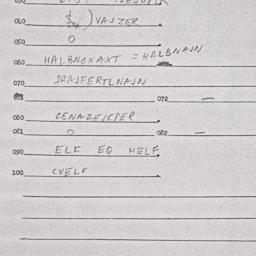 040 ) VAJZER
050 0
060 HALBNOXAXT = HALBNAJN
070 DRAJFERTLNAJN
072 —
080 CENAZEJGPER
081 0 082 —
090 ELF EQ HELF
100 CVELF